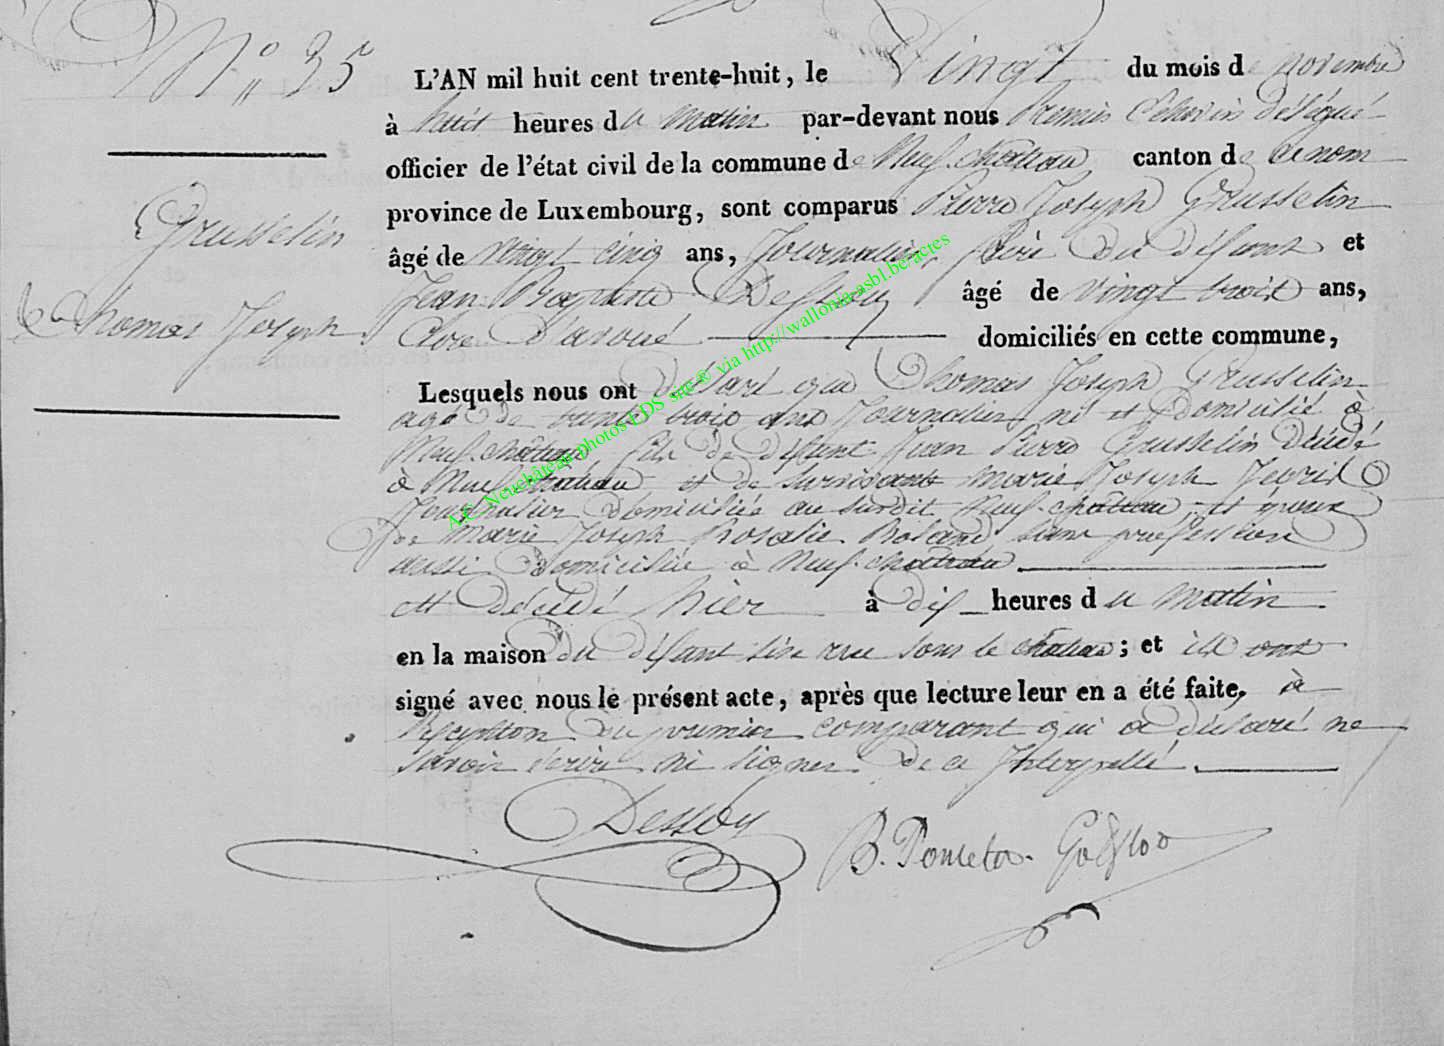 N° 35
L'AN mil huit cent trente-huit, le Vingt du mois de novembre
à huit heures du matin par-devant nous Premier Echevin délégué
officier de l'état civil de la commune de Neufchâteau canton de ce nom
province de Luxembourg, sont comparus Pierre Joseph Grusselin
Grusselin
âgé de vingt cinq ans, Journalier, frère du défunt et
Jean Baptiste Dessoy âgé de vingt trois ans,
Thomas Joseph
Clerc d'avoué domiciliés en cette commune,
Lesquels nous ont déclaré que Thomas Joseph Grusselin
agé de trente trois ans Journalier, né et domicilié à
Neufchâteau fils de défunt Jean Pierre Grusselin décédé
à Neufchâteau et de survivante Marie Joseph
Journalier domiciliée au susdit Neufchâteau, et époux
de Marie Joseph Rosalie Roland sans profession
aussi domiciliée à Neufchâteau
est décédé hier à dix heures du matin
en la maison du défunt sise rue sous le château; et ils ont
signé avec nous le présent acte, après que lecture leur en a été faite, à
l'exception du premier comparant qui a déclaré ne
savoir écrire ni signer de ce Interpellé.
Dessoy
A.C. Neuchâteau photos EDS site® via http://wallonia-asbl.be/actes